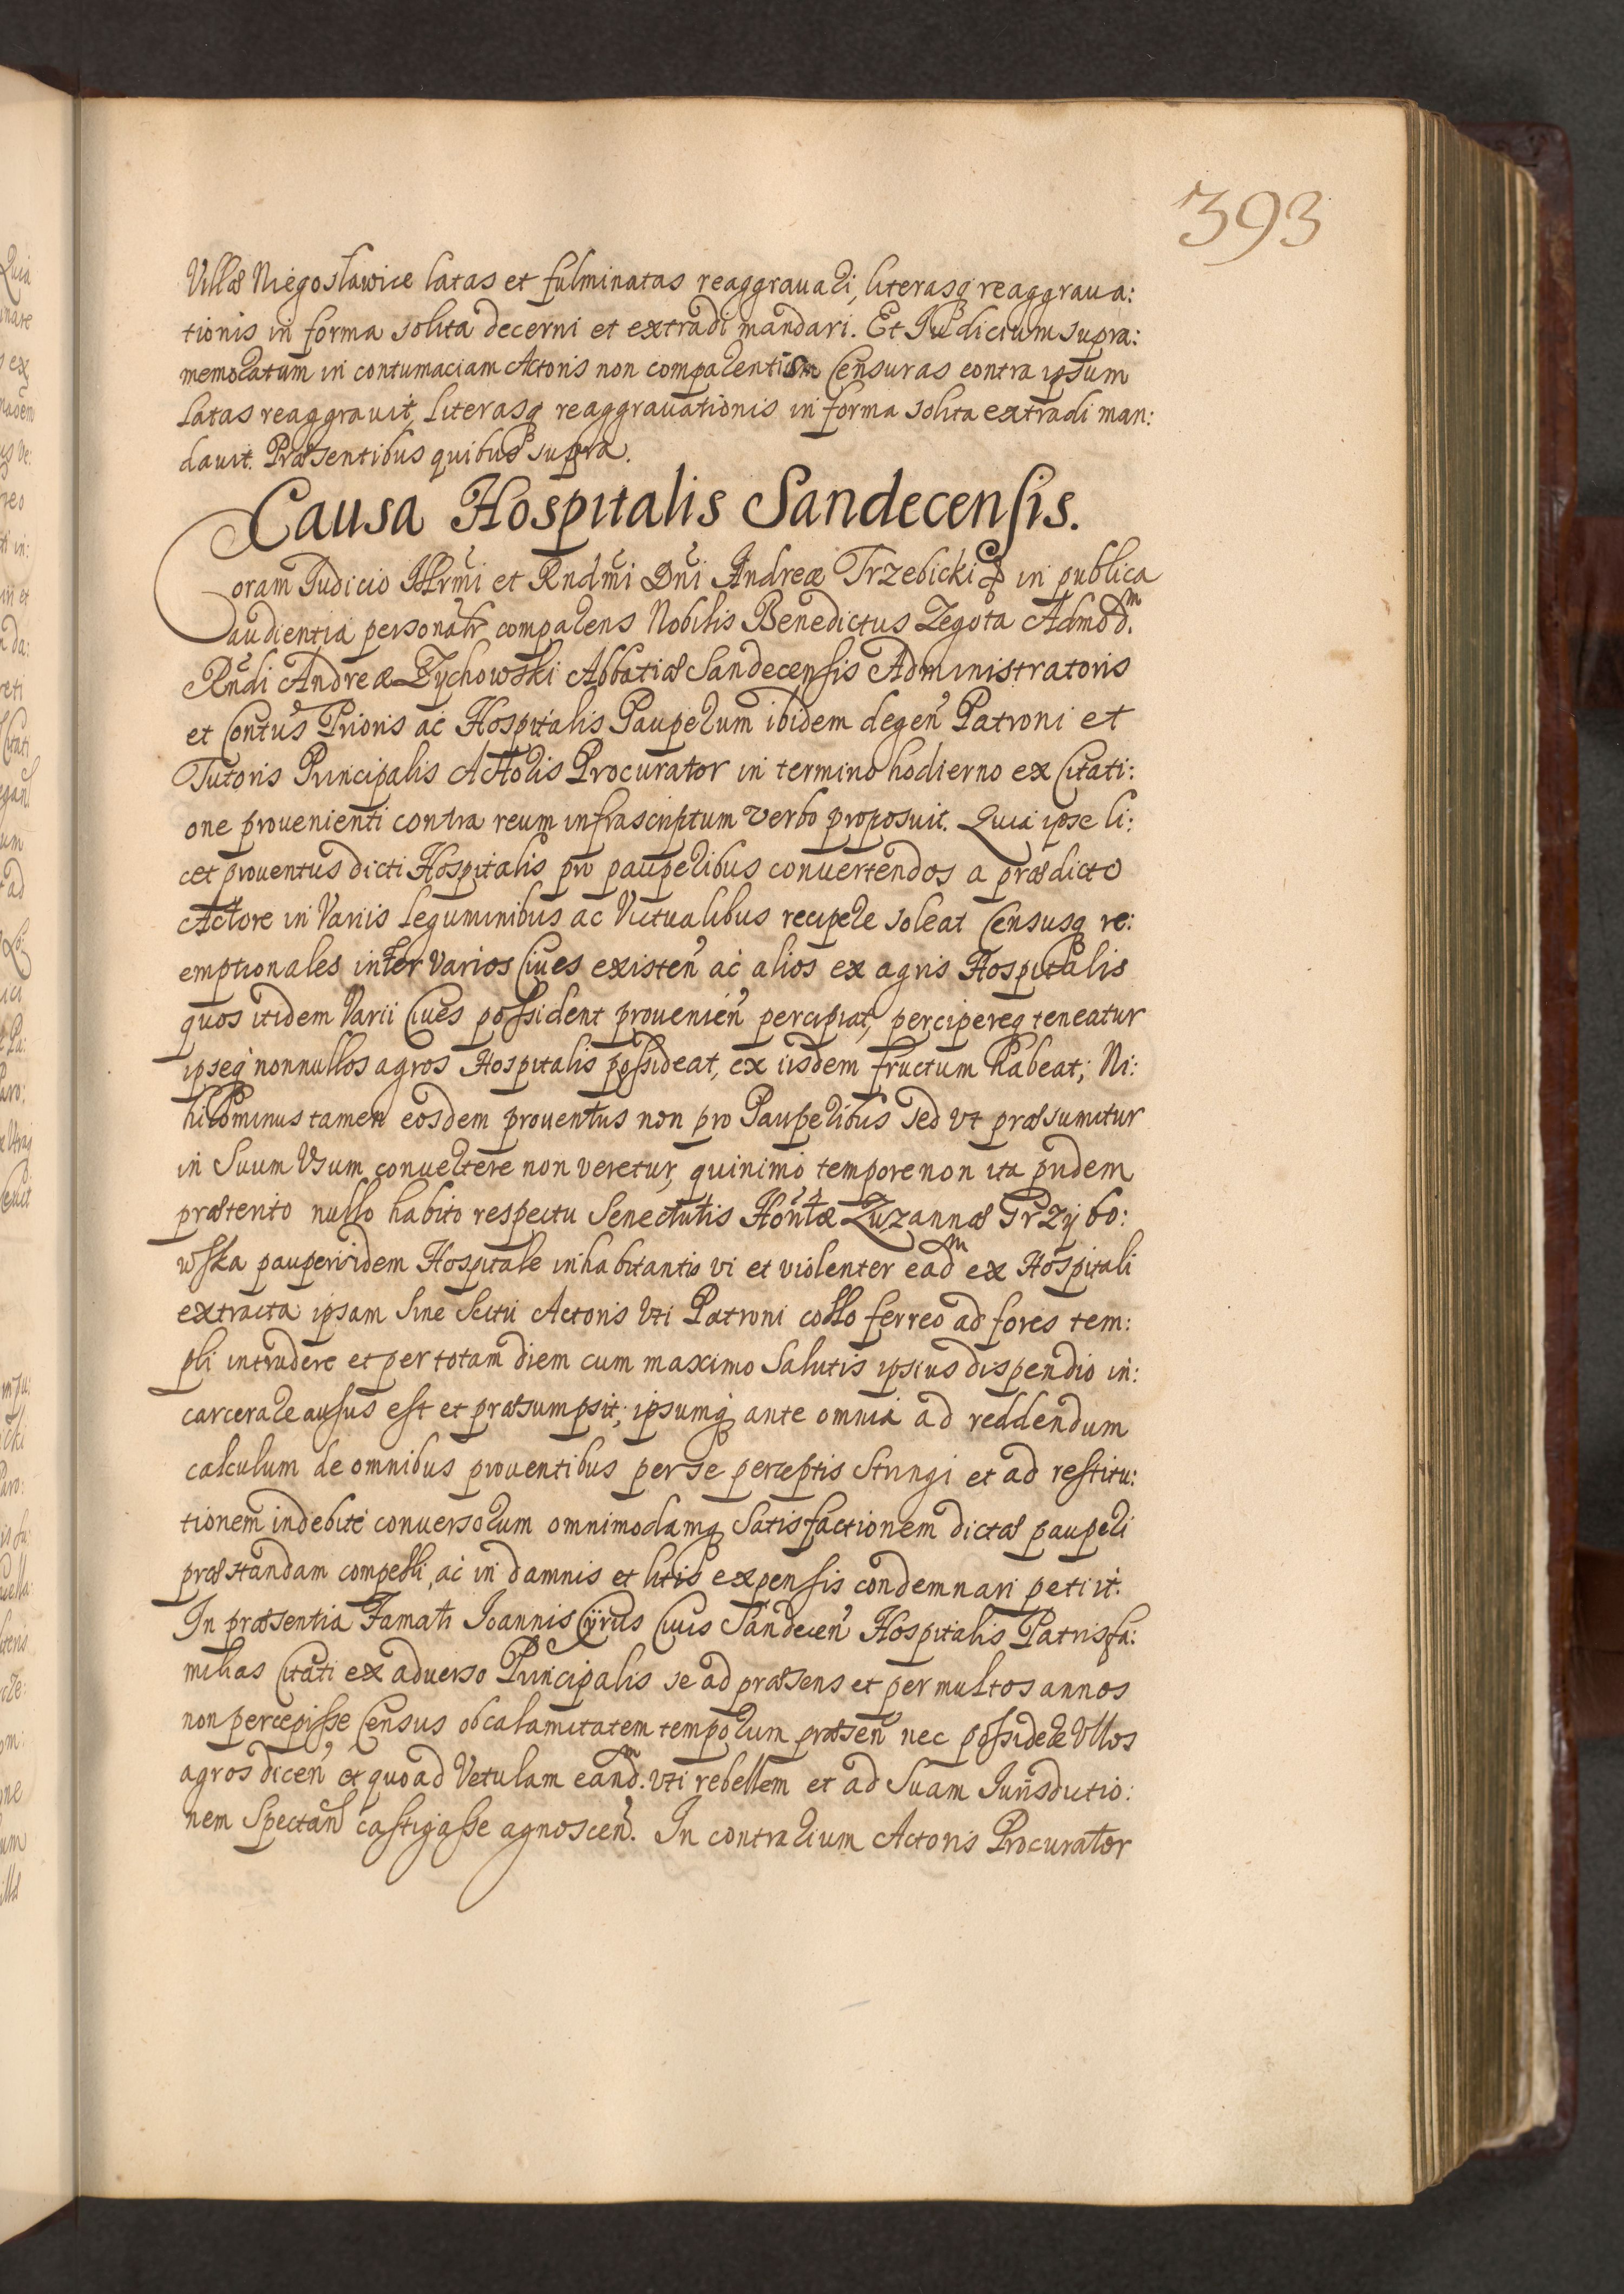 393
Villæ Niegosławice latas et fulminatas reaggrauari, literasq reaggraua:
tionis in forma solita decerni et extradi mandari. Et Iudicium supra:
memoratum in contumaciam Actoris non comparentis Censuras contra ipsum
latas reaggrauit, literasq reaggrauationis in forma solita extradi man:
dauit. Præsentibus quibus supra.
Causa Hospitalis Sandecensis.
Coram Iudicio Illrmi et Rndmi Dni Andreæ Trzebicki in publica
audientia personalr comparens Nobilis Benedictus Zegota Admod.
Rndi Andreæ Zychowski Abbatiæ Sandecensis Administratoris
et Contus Prioris ac Hospitalis Pauperum ibidem degen Patroni et
Tutoris Principalis Actoris Procurator in termino hodierno ex Citati:
one prouenienti contra reum infrascriptum verbo proposuit. Quia ipse li:
cet prouentus dicti Hospitalis pro pauperibus conuertendos a prædicto
Actore in Variis leguminibus ac Victualibus recipere soleat Censusq re:
emptionales inter Varios Ciues existen ac alios ex agris Hospitalis
quos itidem Varii Ciues possident prouenien percipiat, percipereq teneatur
ipseq nonnullos agros Hospitalis possideat, ex iisdem fructum habeat; Ni:
hilominus tamen eosdem prouentus non pro Pauperibus sed vt præsumitur
in Suum Vsum conuertere non veretur, quinimo tempore non ita pridem
præterito nullo habito respectu Senectutis Hontæ Zuzannæ Przÿbo:
wska pauperis ibidem Hospitale inhabitantis vi et violenter eadm ex Hospitali
extracta ipsam Sine Scitu Actoris Vti Patroni collo ferreo ad fores tem:
pli intrudere et per totam diem cum maximo Salutis ipsius dispendio in:
carcerare ausus est et præsumpsit; ipsumq ante omnia ad reddendum
calculum de omnibus prouentibus per se perceptis Stringi et ad restitu:
tionem indebite conuersorum omnimodamq Satisfactionem dictæ pauperi
præstandam compelli, ac in damnis et litis expensis condemnari petiit.
In præsentia Famati Ioannis Cÿrus Ciuis Sandecen Hospitalis Patrisfa:
milias Citati ex aduerso Principalis se ad præsens et per multos annos
non percepisse Census ob calamitatem temporum præsen nec possidere Vllos
agros dicen et quoad Vetulam eandm. vti rebellem et ad Suam Iurisdictio:
nem Spectan castigasse agnoscen. In contrarium Actoris Procurator